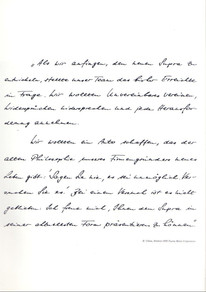 „Als wir anfingen, den neuen Supra zu
entwickeln, stellte unser Team das bisher Erreichte
in Frage. Wir wollten Unvereinbares vereinen,
Widersprüchen widersprechen und jede Herausfor-
derung annehmen.
Wir wollten ein Auto schaffen, das der
alten Philosophie unseres Firmengründers neues
Leben gibt: "Sagen Sie nie, es sei unmöglich. Ver-
suchen Sie es." Bei einem Versuch ist es nicht
geblieben. Ich freue mich, Ihnen den Supra in
seiner aktuellsten Form präsentieren zu können."